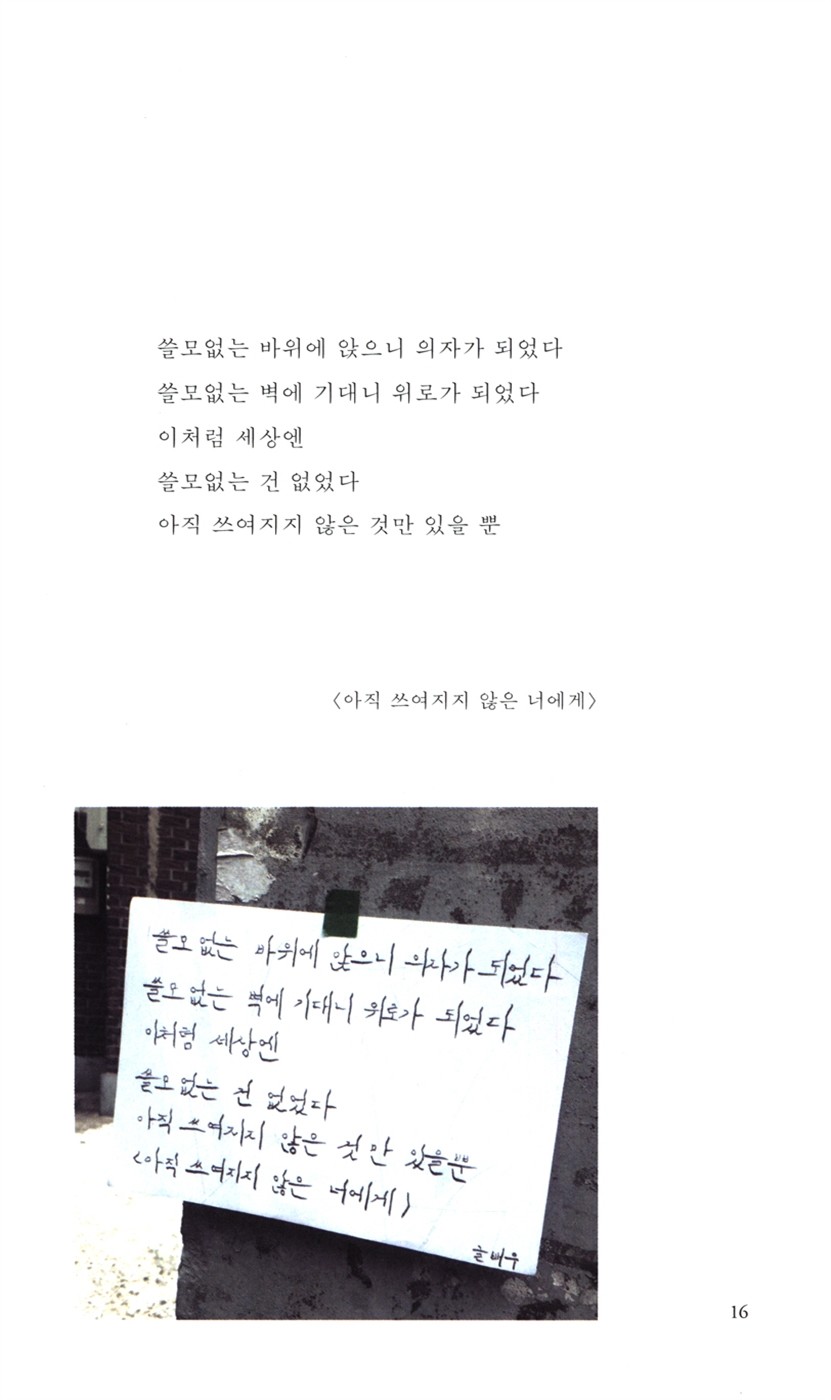 쓸모없는 바위에 앉으니 의자가 되었다
쓸모없는 벽에 기대니 위로가 되었다
이처럼 세상엔
쓸모없는 건 없었다
아직 쓰여지지 않은 것만 있을 뿐
〈아직 쓰여지지 않은 너에게〉
쓸모 없는 바위에 앉으니 의자가 되었다
쓸모 없는 벽에 기대니 위로가 되었다
이처럼 세상엔
쓸모 없는 건 없었다
아직 쓰여지지 않은 것만 있을뿐
<아직 쓰여지지 않은 너에게>
글배우
16